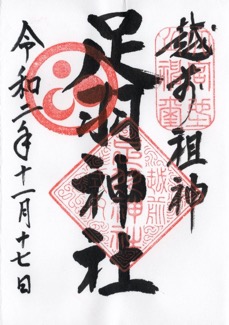 越前祖神
足羽神社
令和二年十一月十七日